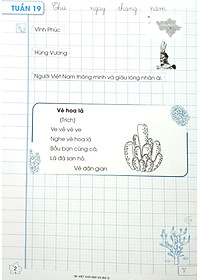 TUẦN 19
Thứ ngày tháng năm
Vĩnh Phúc
Hùng Vương
Người Việt Nam thông minh và giàu lòng nhân ái.
Vè hoa lá
(Trích)
Ve vẻ vè ve
Nghe vè hoa lá
Bầu bạn cùng cá
Là đá san hô.
Vè dân gian
2